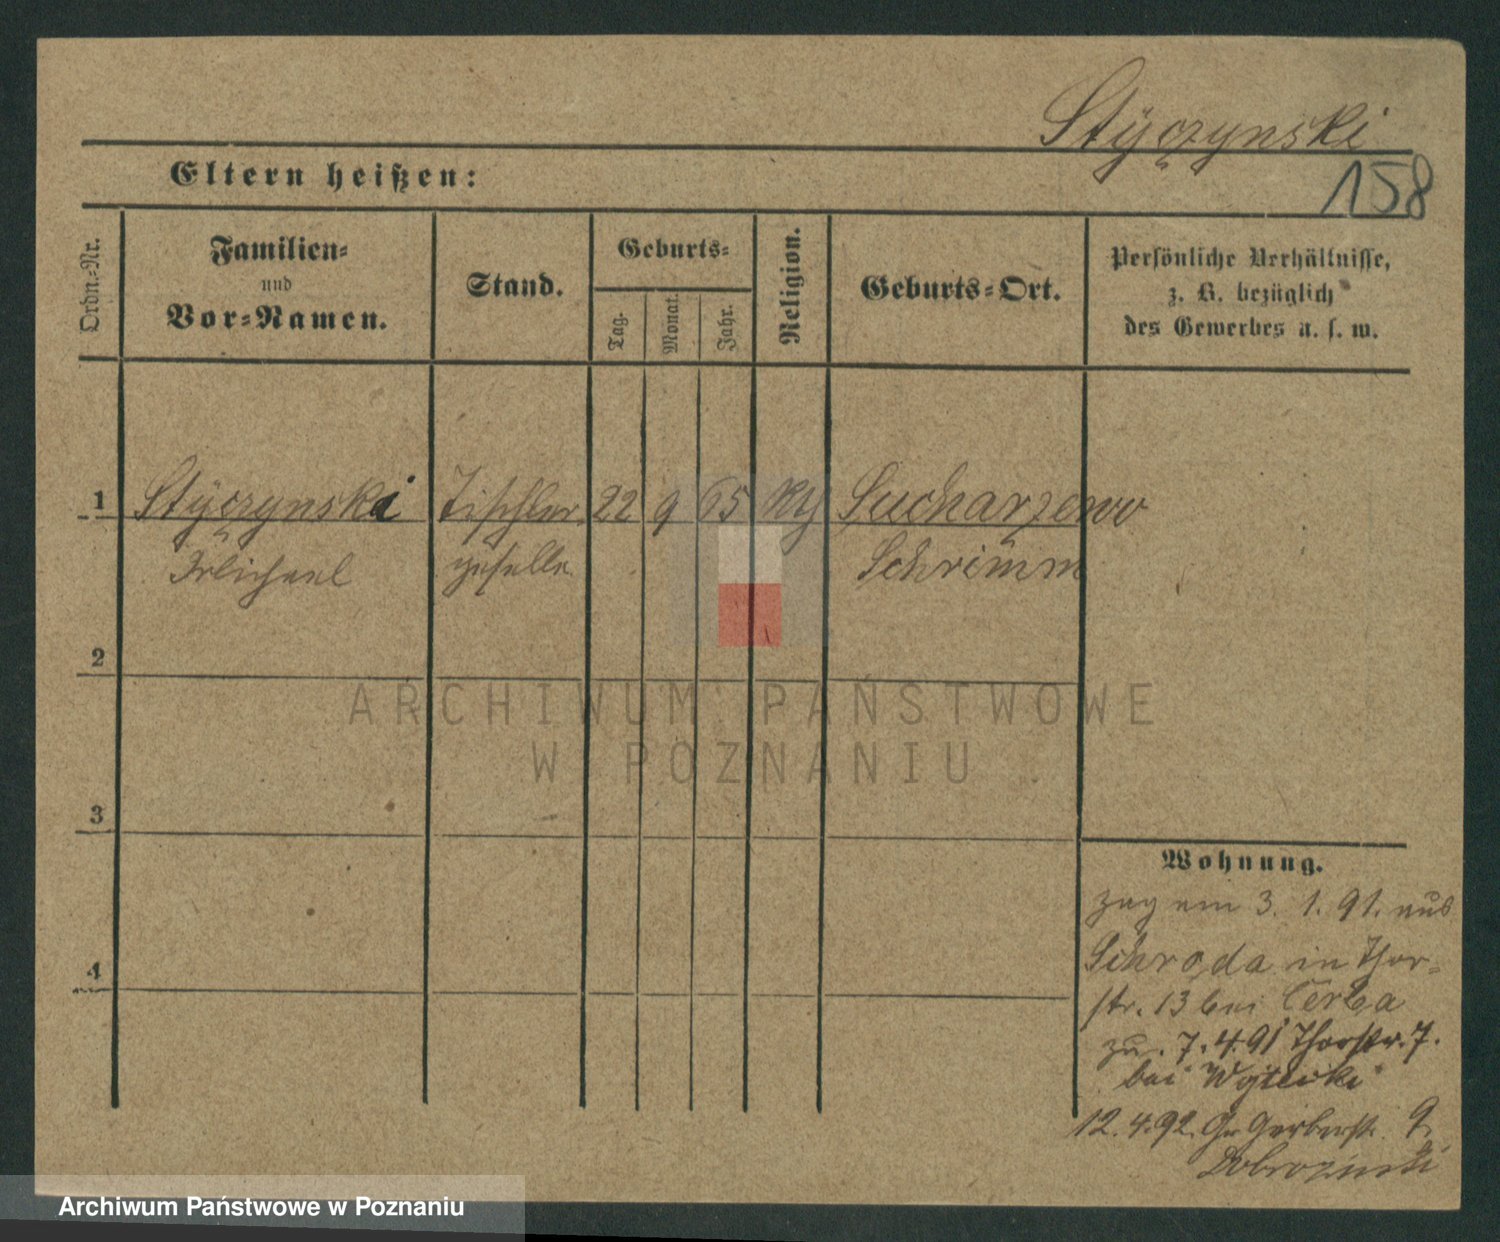 Styczynski
158
Eltern heißen:
Ordn.-Nr.
Familien-
und
Vor-Namen.
Stand.
Geburts-
Tag.
Monat.
Jahr.
Religion.
Geburts-Ort.
Persönliche Verhältnisse,
z. B. bezüglich
des Gewerbes u. s. w.
1 Styczynski Tischler 22 9 65 kth Sucharzewo
Michael geselle Schrimm
2
3
4
Wohnung.
zug am 3. 1. 91. aus
Schroda in Thor-
str. 13 bei Cerba
zu. 7. 4. 91 Thorstr. 7.
bei
12. 4. 92. Gr Gerberstr. 9.
ARCHIWUM PAŃSTWOWE
W POZNANIU
Archiwum Państwowe w Poznaniu